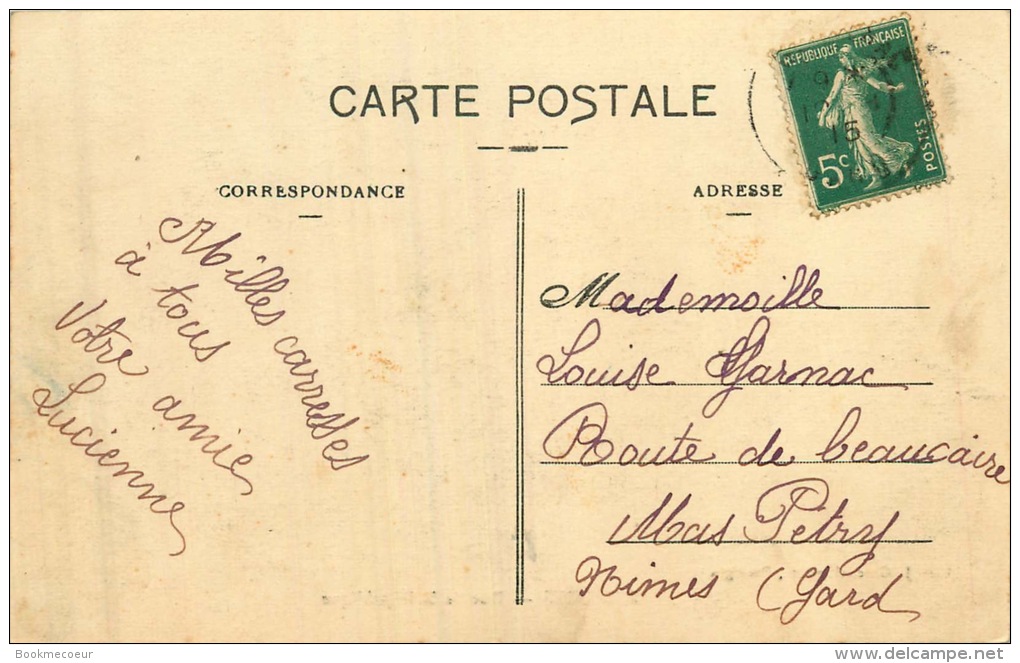 CARTE POSTALE
RÉPUBLIQUE FRANÇAISE
5c
POSTES
15
CORRESPONDANCE
ADRESSE
Milles carresses
à tous
Votre amie
Lucienne
Mademoille
Louise Garnac
Route de beaucaire
Mas Pétry
Nimes (Gard
Bookmecoeur
delcampe.net